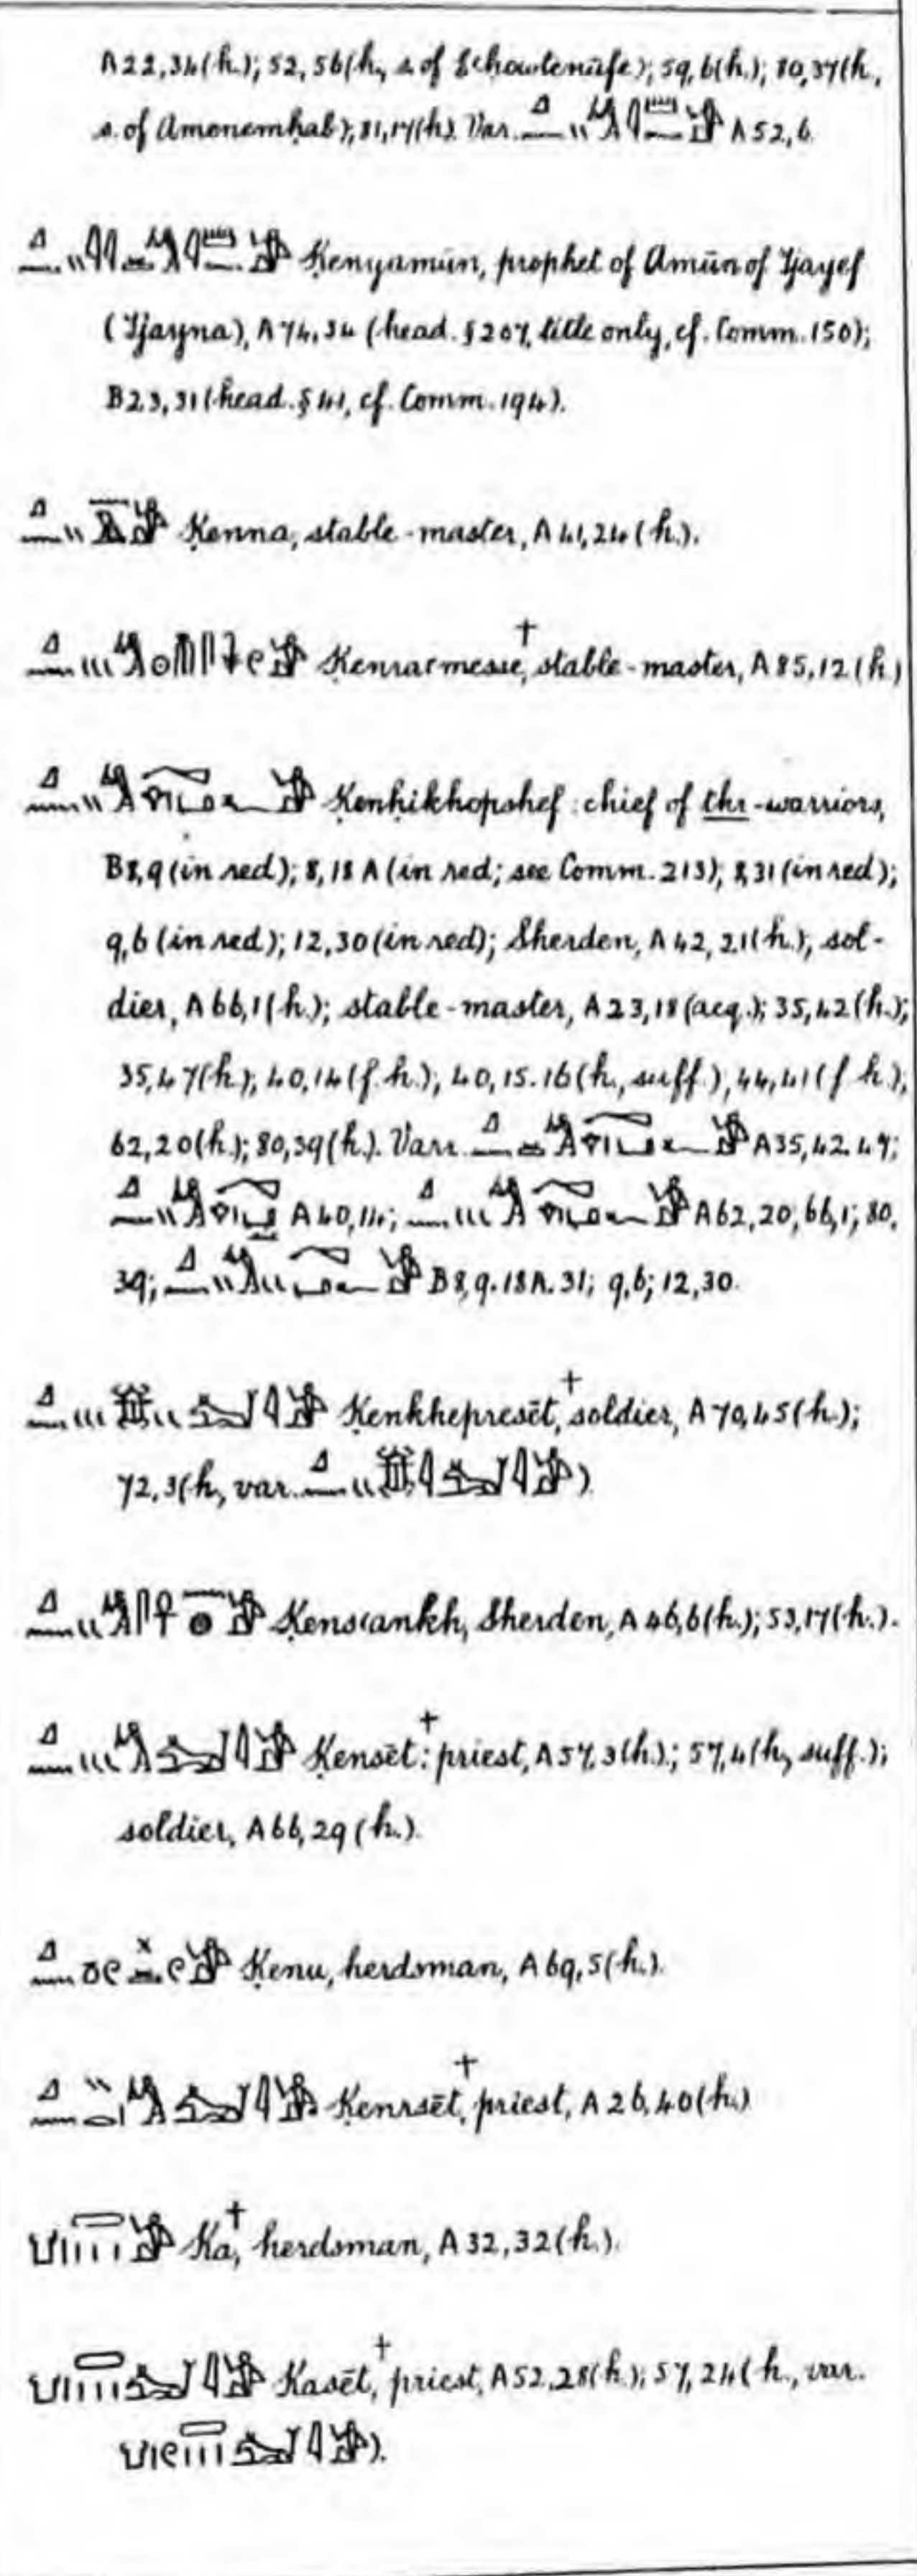 A22,34(h.); 52,56(h., s. of Ḏḥowtenūfe); 59,6(h.); 80,37(h.,
s. of Amenemḥab); 81,17(h.). Var. A52,6.
Ḳenyamūn, prophet of Amūn of Tjayef
(Tjayna), A74,34 (head. §207, title only, cf. Comm. 150);
B23,31 (head. §41, cf. Comm. 194).
Ḳenna, stable-master, A41,24(h.).
Ḳenraꜥmesse,† stable-master, A85,12(h.)
Ḳenḥikhopshef: chief of thr-warriors,
B8,9(in red); 8,18A(in red; see Comm. 213); 8,31(in red);
9,6(in red); 12,30(in red); Sherden, A42,21(h.); sol-
dier, A66,1(h.); stable-master, A23,18(acq.); 35,42(h.);
35,47(h.); 40,14(f.h.); 40,15.16(h., suff.); 44,41(f.h.);
62,20(h.); 80,39(h.). Varr. A35,42.47;
A40,14; A62,20; 66,1; 80,
39; B8,9.18A.31; 9,6; 12,30.
Ḳenkhepresēt,† soldier, A70,45(h.);
72,3(h., var. )
Ḳensꜥankh, Sherden, A46,6(h.); 53,17(h.).
Ḳensēt:† priest, A57,3(h.); 57,4(h., suff.);
soldier, A66,29(h.).
Ḳenu, herdsman, A69,5(h.).
Ḳenrsēt,† priest, A26,40(h.)
Ka,† herdsman, A32,32(h.).
Kasēt,† priest, A52,28(h.); 57,24(h., var.
).